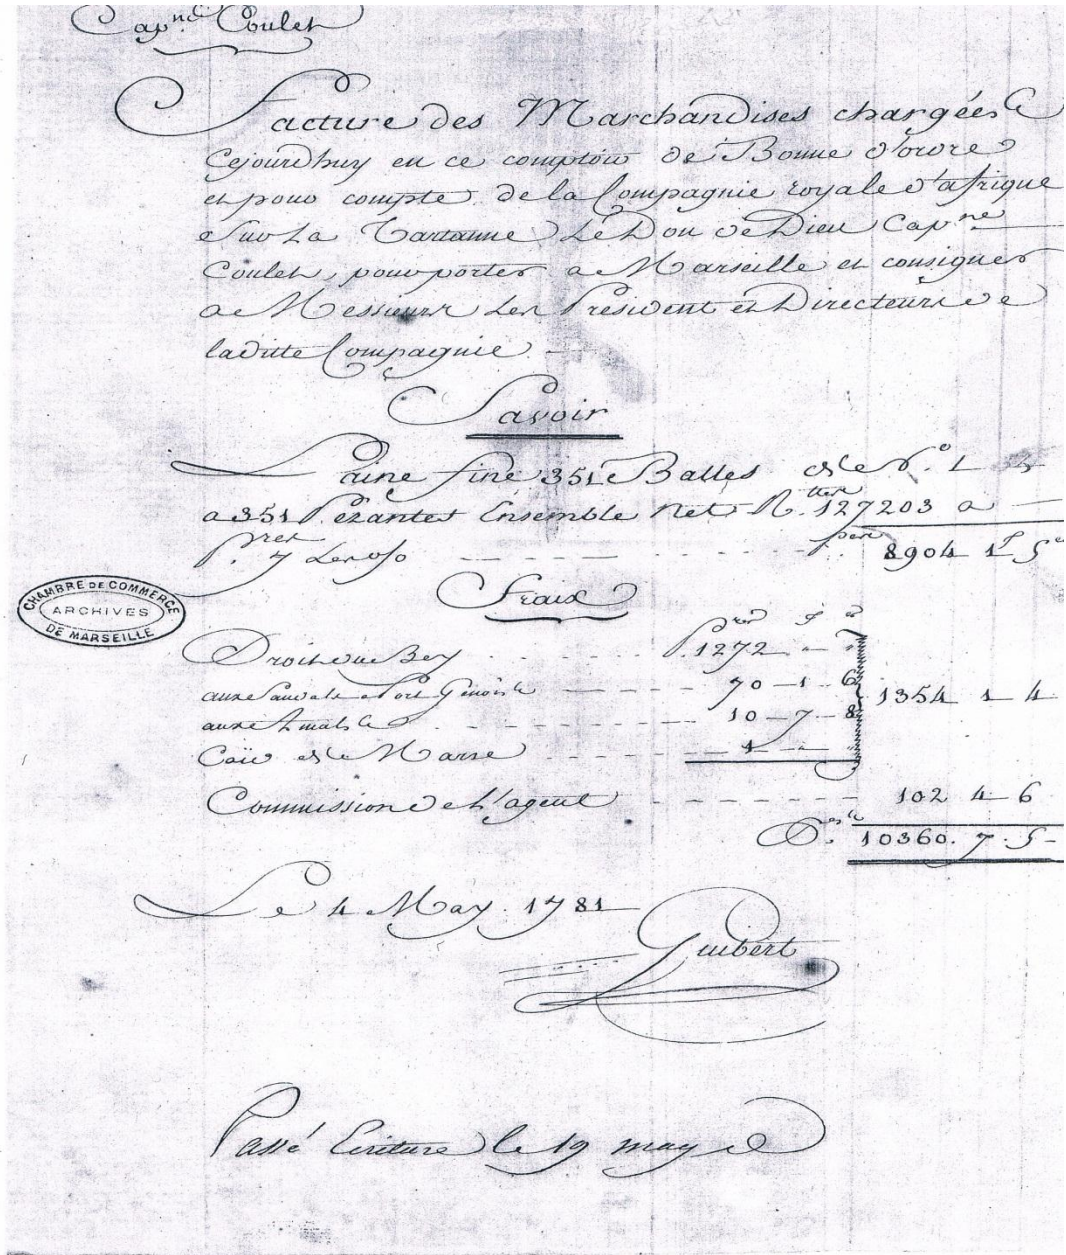 Capne Coulet
Facture des Marchandises chargées
Cejourdhuy en ce comptoir de Bonne d'ordre
et pour compte de la Compagnie royale d'afrique
Sur La Tartanne Le Don de Dieu Capne
Coulet, pour porter a Marseille et consigner
a Messieurs Les President et Directeurs de
laditte Compagnie
Savoir
Laine fine 351 Balles de N.o 1
a 351 Pezantes Ensemble Net R. 127203 a
P. 7 Les %o 8904 1 5
Fraix
CHAMBRE DE COMMERCE
ARCHIVES
DE MARSEILLE
Droit du Bey P. 1272 - -
70 - 1 6 1354 1 4
10 - 7 - 8
Caïd de la Marse 1 -
Commission de L'agent 102 4 - 6
10360. 7. 5 -
Le 4 May 1781
Guibert
Passé Ecriture le 19 may